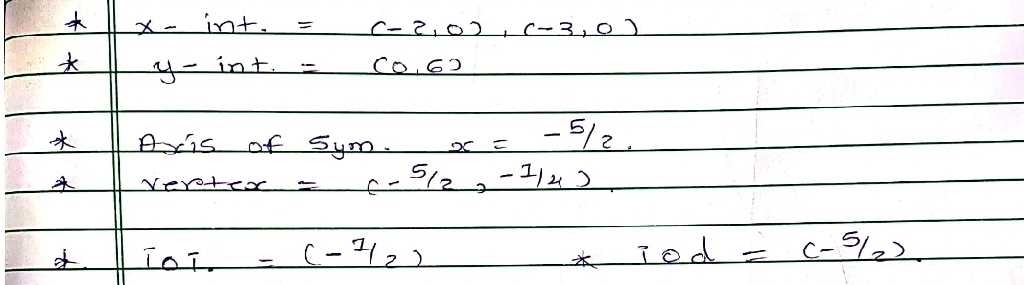 * x - int. = (-2,0), (-3,0)
* y - int. = (0,6)
* Axis of Sym. x = -5/2.
* vertex = (-5/2, -1/4)
* IoI. = (-1/2) * Iod = (-5/2).